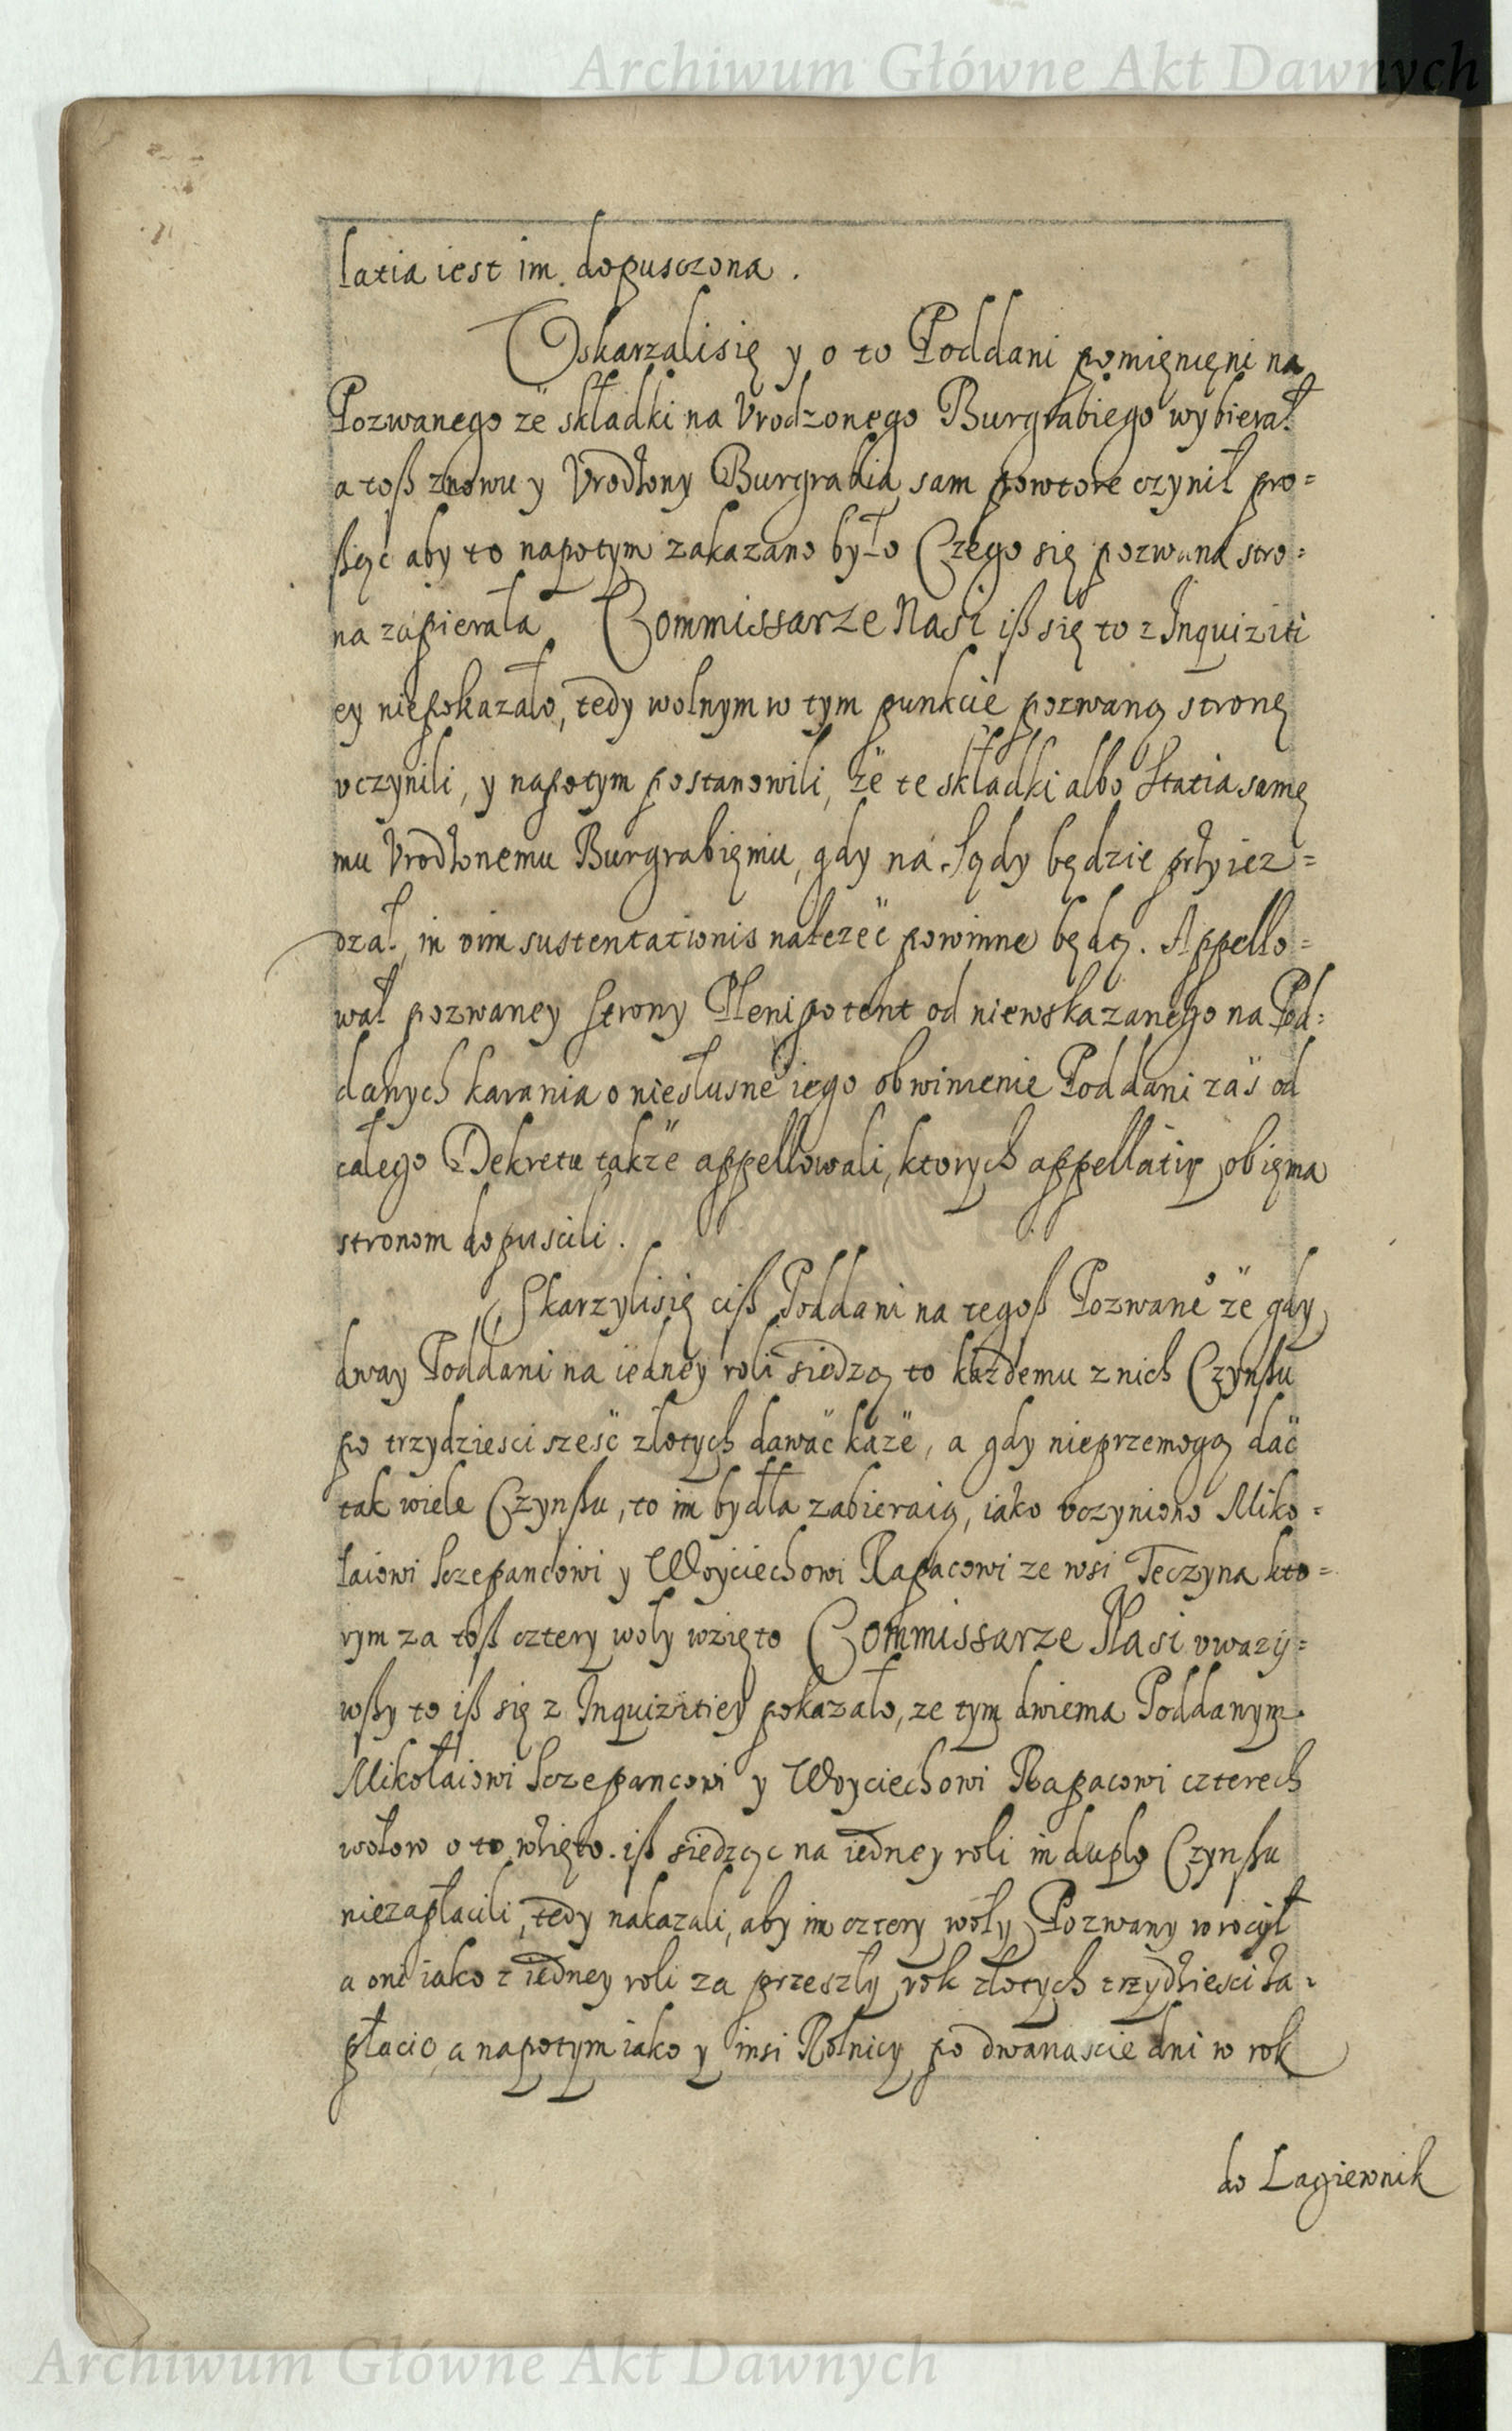 Archiwum Główne Akt Dawnych
latia iest im dopusczona.
Oskarzalisię y o to Poddani pomięnięni na
Pozwanego że składki na Vrodzonego Burgrabiego wybierał
a toß znowu y Vrodzony Burgrabia sam powtore czynił pro=
ßąc aby to napotym zakazano było Czego się pozwana stro=
na zapierała Commissarze Nasi iß się to z Inquiziti
ey niepokazało, tedy wolnym w tym punkcie pozwaną stronę
vczynili, y napotym postanowili, że te składki albo Statia samę
mu Vrodzonemu Burgrabięmu, gdy na Sądy będzie przyiez=
dzał, in vim sustentationis należeć powinne będą. Appello=
wał pozwaney strony Plenipotent od niewskazanego na Pod=
danych karania o niesłusne iego obwinienie Poddani zaś od
całego Dekretu także appellowali, ktorych appellatię obięma
stronom dopuscili.
Skarzylisię ciß Poddani na tegoß Pozwane° że gdy
dway Poddani na iedney roli siedzą to każdemu z nich Czynßu
po trzydziesci sześć złotych dawać każe, a gdy nieprzemogą dać
tak wiele Czynßu, to im bydła zabieraią, iako vczyniono Miko=
łaiowi Sczepancowi y Woyciechowi Rapacowi ze wsi Teczyna kto=
rym za toß cztery woły wzięto Commissarze Nasi vwazy=
wßy to iß się z Inquizitiey pokazało, ze tym dwiema Poddanym
Mikołaiowi Sczepancowi y Woyciechowi Rapacowi czterech
wołow o to wzięto. iß siedząc na iedney roli in duplo Czynßu
niezapłacili, tedy nakazali, aby im cztery woły Pozwany wrocił
a oni iako z iedney roli za przeszły rok złotych trzydziesci za=
płacić, a napotym iako y insi Rolnicy po dwanascie dni w rok
do Lagiewnik
Archiwum Główne Akt Dawnych